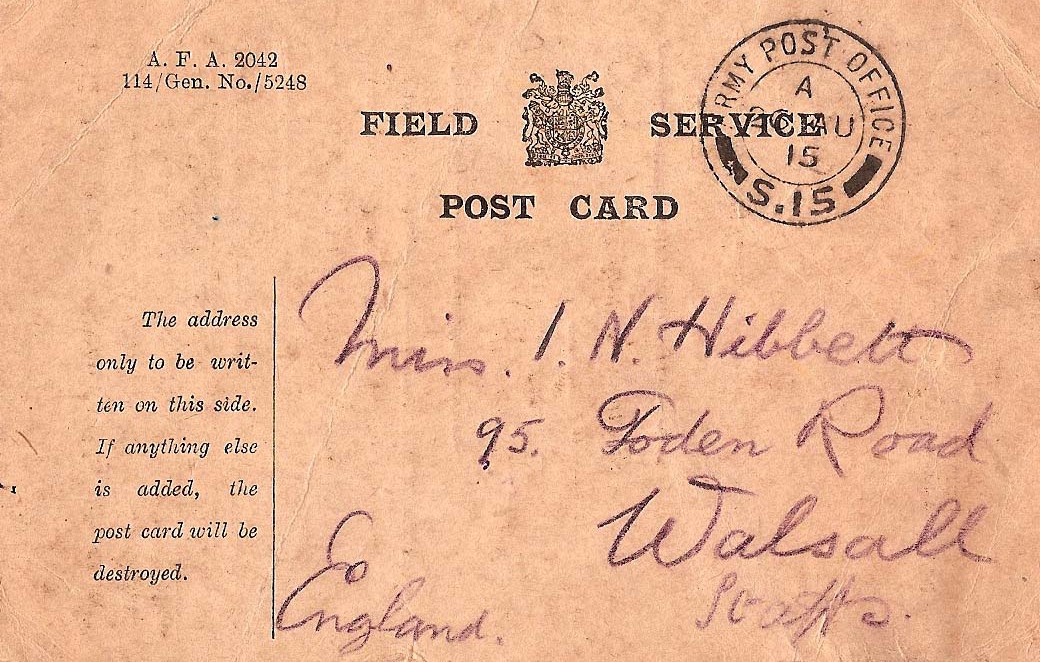 A. F. A. 2042
114/Gen. No./5248
FIELD SERVICE
POST CARD
ARMY POST OFFICE
A
AU
15
S.15
The address
only to be writ-
ten on this side.
If anything else
is added, the
post card will be
destroyed.
Miss. I. N. Hibbett
95. Foden Road
Walsall
Staffs.
England.